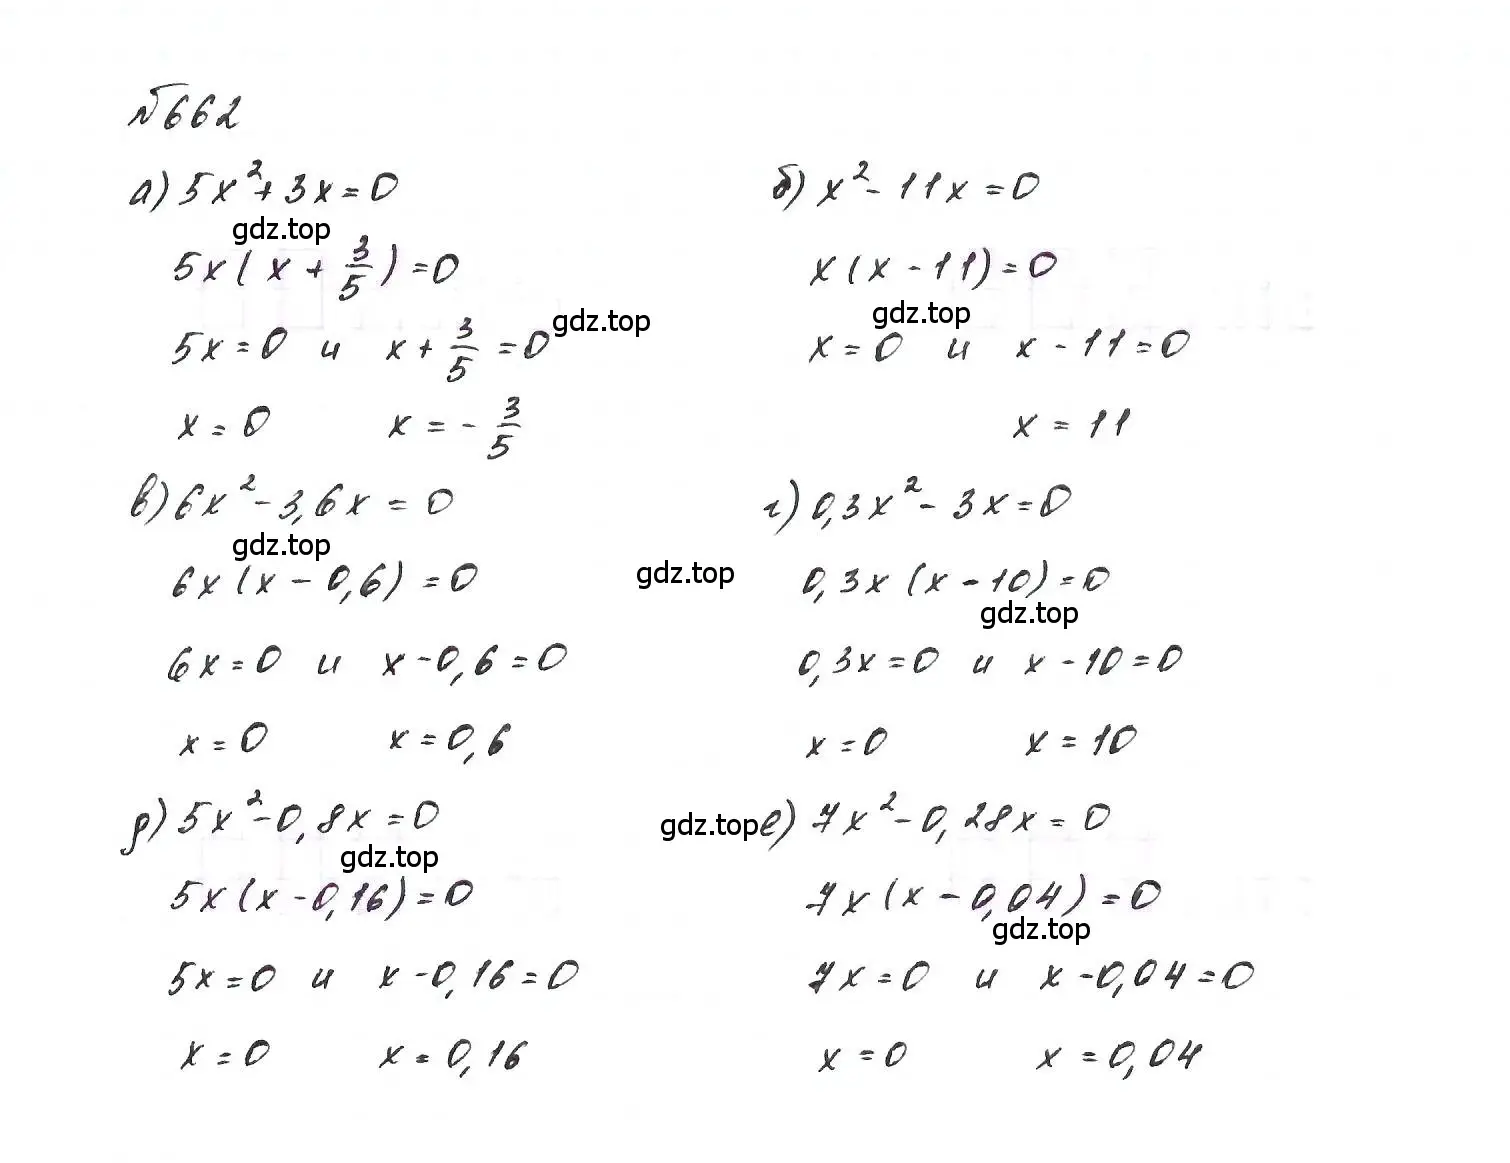 №662
а) 5x² + 3x = 0
gdz.top
5x(x + 3/5) = 0
5x = 0 и x + 3/5 = 0
gdz.top
x = 0 x = - 3/5
б) x² - 11x = 0
x(x - 11) = 0
gdz.top
x = 0 и x - 11 = 0
x = 11
в) 6x² - 3,6x = 0
gdz.top
6x(x - 0,6) = 0
gdz.top
6x = 0 и x - 0,6 = 0
x = 0 x = 0,6
г) 0,3x² - 3x = 0
0,3x(x - 10) = 0
gdz.top
0,3x = 0 и x - 10 = 0
x = 0 x = 10
д) 5x² - 0,8x = 0
gdz.top
5x(x - 0,16) = 0
5x = 0 и x - 0,16 = 0
x = 0 x = 0,16
gdz.top
е) 7x² - 0,28x = 0
7x(x - 0,04) = 0
gdz.top
7x = 0 и x - 0,04 = 0
x = 0 x = 0,04